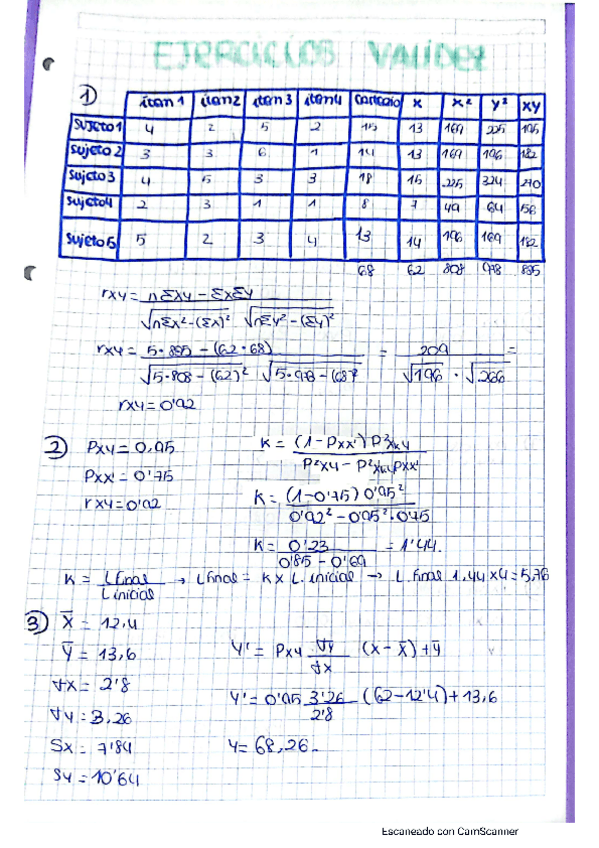 EJERCICIOS VALIDEZ
1)
item 1 item 2 item 3 item 4 Criterio X X² Y² XY
Sujeto 1 4 2 5 2 15 13 169 225 195
Sujeto 2 3 3 6 1 14 13 169 196 182
Sujeto 3 4 5 3 3 18 15 225 324 270
Sujeto 4 2 3 1 1 8 7 49 64 56
Sujeto 5 5 2 3 4 13 14 196 169 182
68 62 808 978 885
rxy = nΣxy - ΣxΣy / √nΣx²-(Σx)² √nΣy²-(Σy)²
rxy = 5·885 - (62·68) / √5·808-(62)² √5·978-(68)² = 209 / √196 · √266 =
rxy = 0'92
2) Pxy = 0,95 K = (1-Pxx') P²xky / P²xy - P²xky Pxx'
Pxx' = 0'75
rxy = 0'92 K = (1-0'75) 0'95² / 0'92² - 0'95²·0'75
K = 0'23 / 0'85 - 0'69 = 1'44.
K = L final / L inicial → L final = K x L. inicial → L. final 1,44 x 4 = 5,76
3) X̄ = 12,4
Ȳ = 13,6 Y' = Pxy σy / σx (x - X̄) + Ȳ
σx = 2'8
σy = 3,26 Y' = 0'95 3'26 / 2'8 (62-12'4) + 13,6
Sx = 7'84 Y = 68,26.
Sy = 10'64
Escaneado con CamScanner